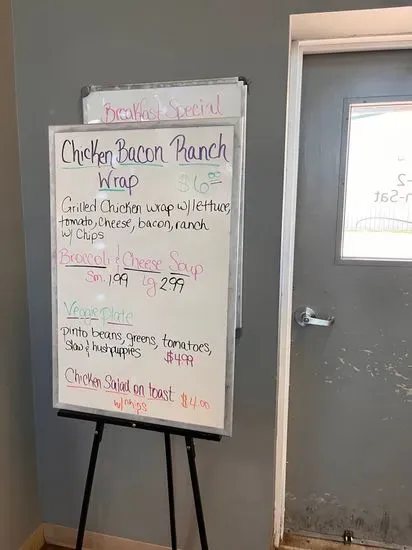 Breakfast Special
Chicken Bacon Ranch
Wrap $6.00
Grilled Chicken wrap w/ lettuce,
tomato, cheese, bacon, ranch
w/ Chips
Broccoli & Cheese Soup
Sm. 1.99 Lg 2.99
Veggie Plate
pinto beans, greens, tomatoes,
Slaw & hushpuppies $4.99
Chicken Salad on toast
w/ chips $4.00
-2
n-Sat